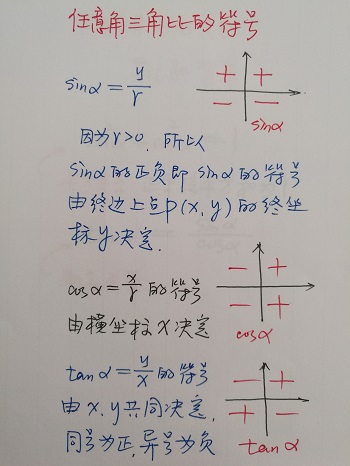 任意角三角比的符号
sinα = y/r
+ +
− −
sinα
因为r>0, 所以
sinα的正负即sinα的符号
由终边上点P(x, y)的终坐
标y决定.
cosα = x/r 的符号
− +
− +
cosα
由横坐标x决定
tanα = y/x 的符号
− +
+ −
tanα
由x、y共同决定,
同号为正,异号为负